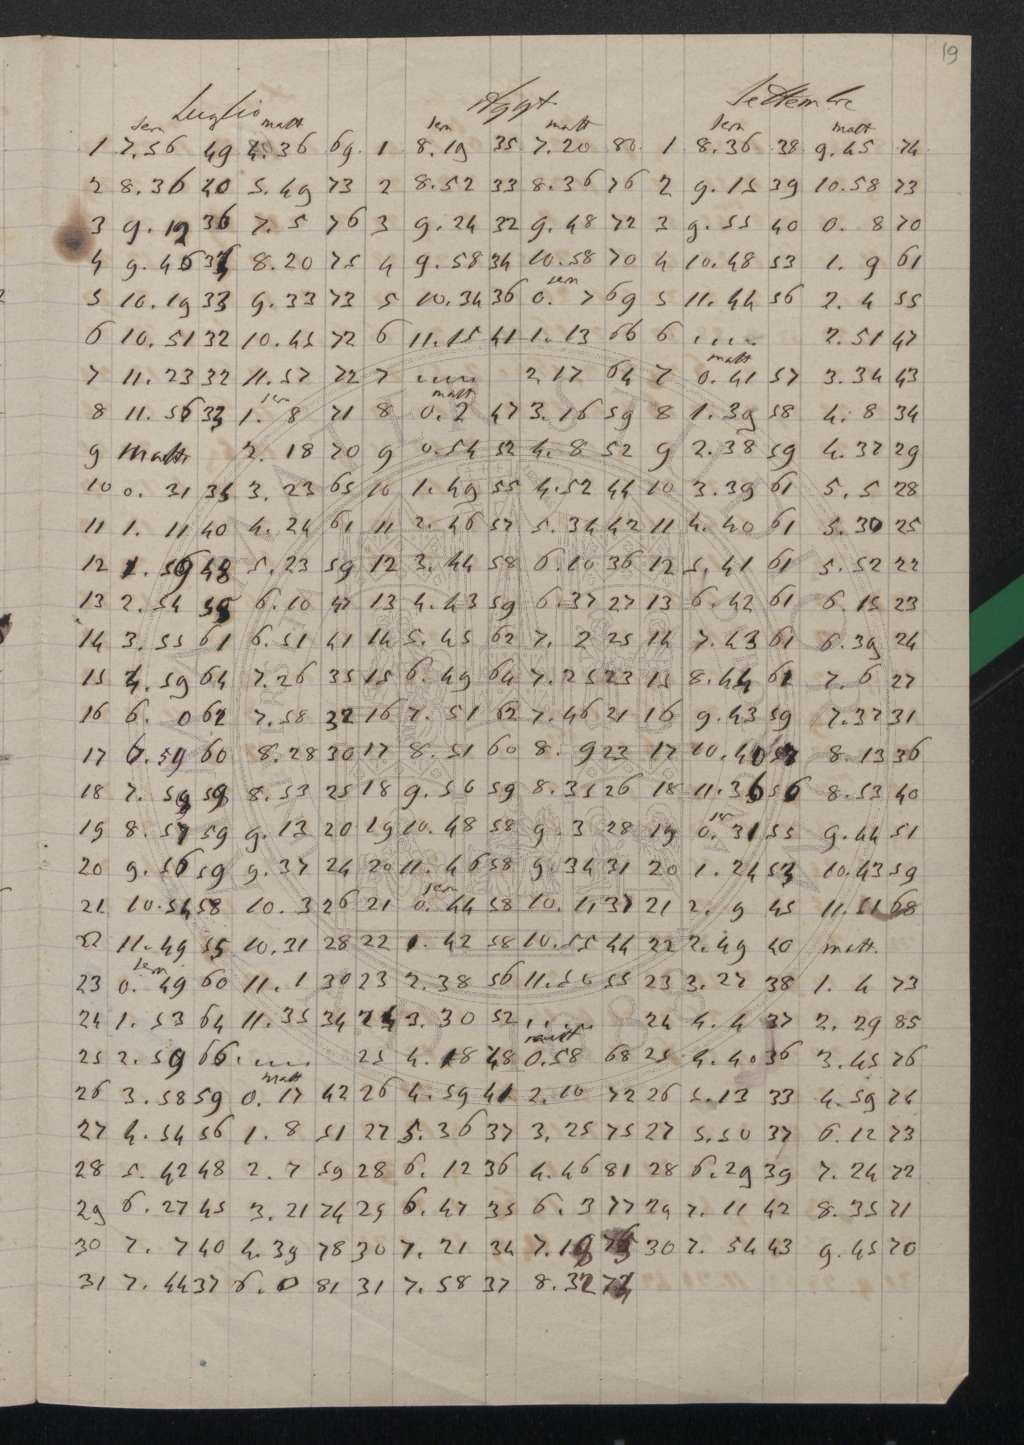 19
Luglio Agst Settembre
sern matt sern matt sern matt
1 7.56 49 4.36 69. 1 8.19 35 7.20 80 1 8.36 38 9.45 74
2 8.36 40 5.49 73 2 8.52 33 8.36 76 2 9.15 39 10.58 73
3 9.12 36 7.5 76 3 9.24 32 9.48 72 3 9.55 40 0. 8 70
4 9.46 34 8.20 75 4 9.58 34 10.58 70 4 10.48 53 1. 9 61
sern
5 10.19 33 9.33 73 5 10.34 36 0. 7 69 5 11.44 56 2. 4 55
6 10.51 32 10.45 72 6 11.15 41 1.13 66 6 .... 2.51 47
matt
7 11.23 32 11.57 72 7 .... 2.17 64 7 0.41 57 3.34 43
ser matt
8 11.56 33 1. 8 71 8 0.2 47 3.16 59 8 1.39 58 4. 8 34
9 matt. 2.18 70 9 0.54 52 4.8 52 9 2.38 59 4.37 29
10 0. 31 35 3.23 65 10 1.49 55 4.52 44 10 3.39 61 5.5 28
11 1. 11 40 4.24 61 11 2.46 57 5.34 42 11 4.40 61 5.30 25
12 1.59 48 5.23 59 12 3.44 58 6.10 36 12 5.41 61 5.52 22
13 2.54 55 6.10 47 13 4.43 59 6.37 27 13 6.42 61 6.15 23
14 3.55 61 6.51 41 14 5.45 62 7. 2 25 14 7.43 61 6.39 24
15 4.59 64 7.26 35 15 6.49 64 7.25 23 15 8.44 61 7.6 27
16 6. 0 62 7.58 32 16 7.51 62 7.46 21 16 9.43 59 7.37 31
17 6.59 60 8.28 30 17 8.51 60 8. 9 23 17 10.40 57 8.13 36
18 7.59 59 8.53 25 18 9.56 59 8.35 26 18 11.36 56 8.53 40
ser
19 8.57 59 9.13 20 19 10.48 58 9.3 28 19 0.31 55 9.44 51
20 9.56 59 9.37 24 20 11.46 58 9.34 31 20 1.24 53 10.43 59
ser
21 10.54 58 10.3 26 21 0.44 58 10.11 37 21 2. 9 45 11.51 68
22 11.49 55 10.31 28 22 1.42 58 10.55 44 22 2.49 40 matt.
sern
23 0.49 60 11.1 30 23 2.38 56 11.50 55 23 3.27 38 1. 4 73
24 1.53 64 11.35 34 24 3.30 52 .... 24 4.4 37 2.29 85
matt
25 2.59 66 .... 25 4.18 48 0.58 68 25 4.40 36 3.45 76
matt
26 3.58 59 0.17 42 26 4.59 41 2.10 72 26 5.13 33 4.59 74
27 4.54 56 1.8 51 27 5.36 37 3.25 75 27 5.50 37 6.12 73
28 5.42 48 2.7 59 28 6.12 36 4.46 81 28 6.29 39 7.24 72
29 6.27 45 3.21 74 29 6.47 35 6.3 77 29 7.11 42 8.35 71
30 7. 7 40 4.39 78 30 7.21 34 7.19 30 7.54 43 9.45 70
31 7.44 37 6.0 81 31 7.58 37 8.32 74